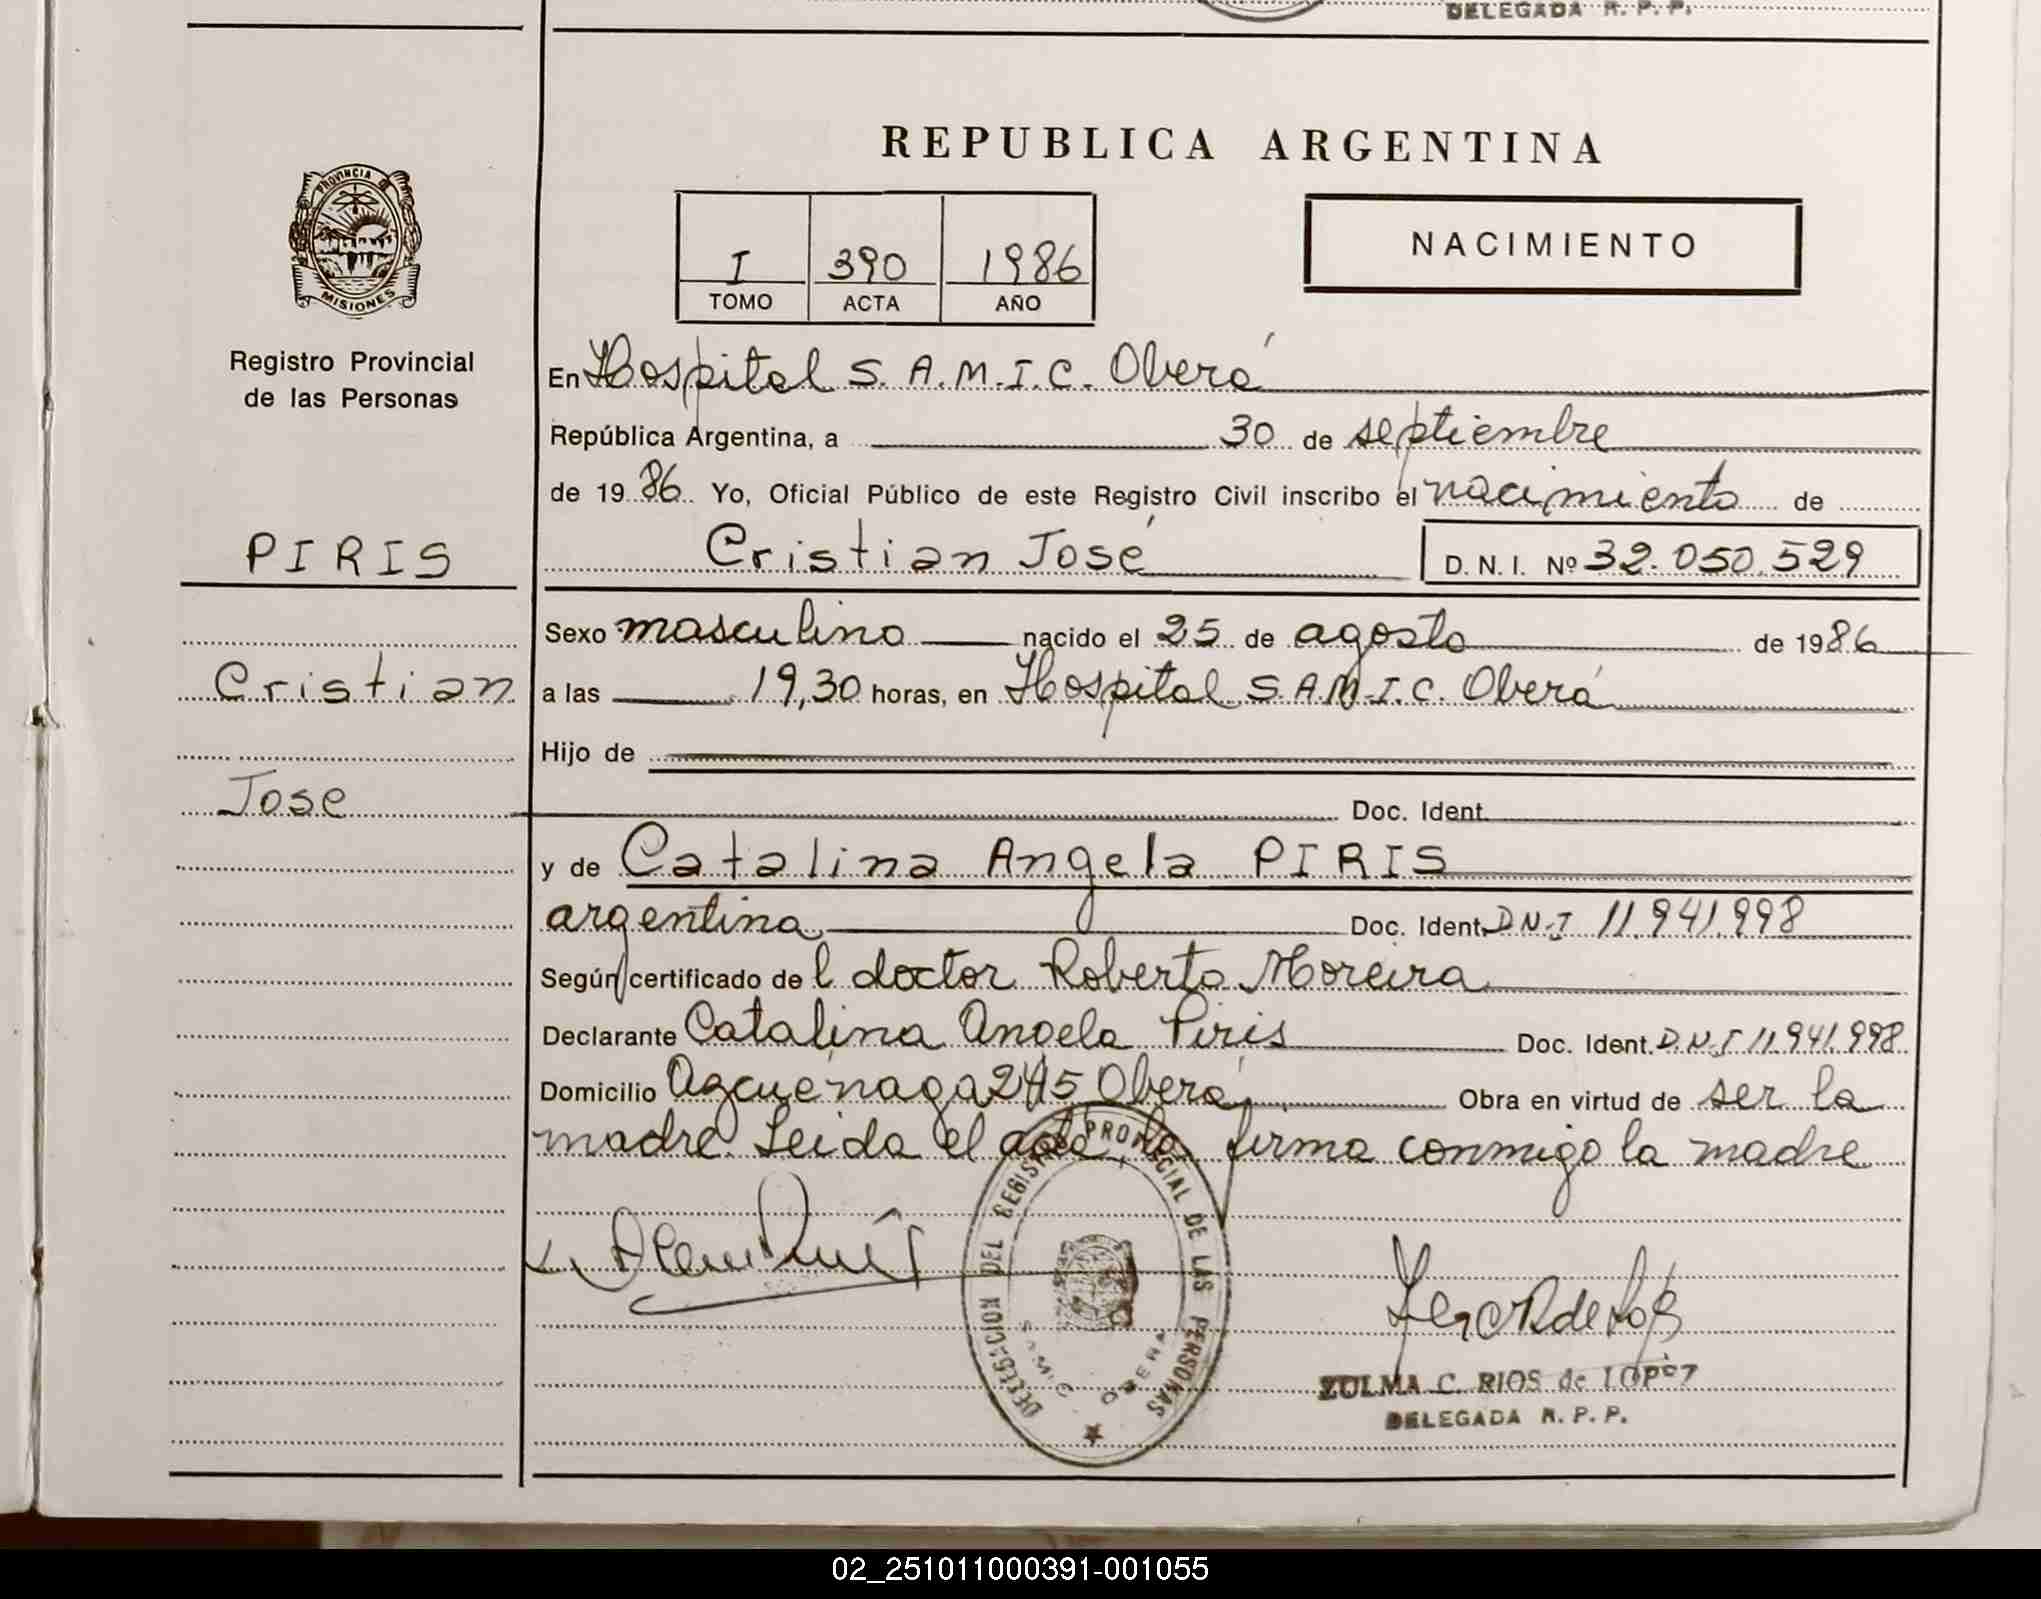 DELEGADA R. P. P.
REPUBLICA ARGENTINA
PROVINCIA DE
MISIONES
I 390 1986
TOMO ACTA AÑO
NACIMIENTO
Registro Provincial
de las Personas
En Hospital S. A. M. I. C. Oberá
República Argentina, a 30 de septiembre
de 1986 Yo, Oficial Público de este Registro Civil inscribo el nacimiento de
PIRIS
Cristian José D. N. I. Nº 32.050.529
Sexo masculino nacido el 25 de agosto de 1986
Cristian
a las 19,30 horas, en Hospital S. A. M. I. C. Oberá
Hijo de
Jose
Doc. Ident.
y de Catalina Angela PIRIS
argentina Doc. Ident. D N I 11.941.998
Según certificado de l doctor Roberto Moreira
Declarante Catalina Angela Piris Doc. Ident. D. N. I 11.941.998
Domicilio Azcuénaga 245 Oberá Obra en virtud de ser la
madre. Leida el acta, la firma conmigo la madre
DELEGACION DEL REGISTRO PROVINCIAL DE LAS PERSONAS
S.A.M.I.C. OBERA
ZULMA C. RIOS de LOPEZ
DELEGADA R. P. P.
02_251011000391-001055